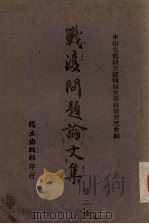 中山文化教育館戰後世界建設研究會編
戰後問題論文集
獨立出版社印行